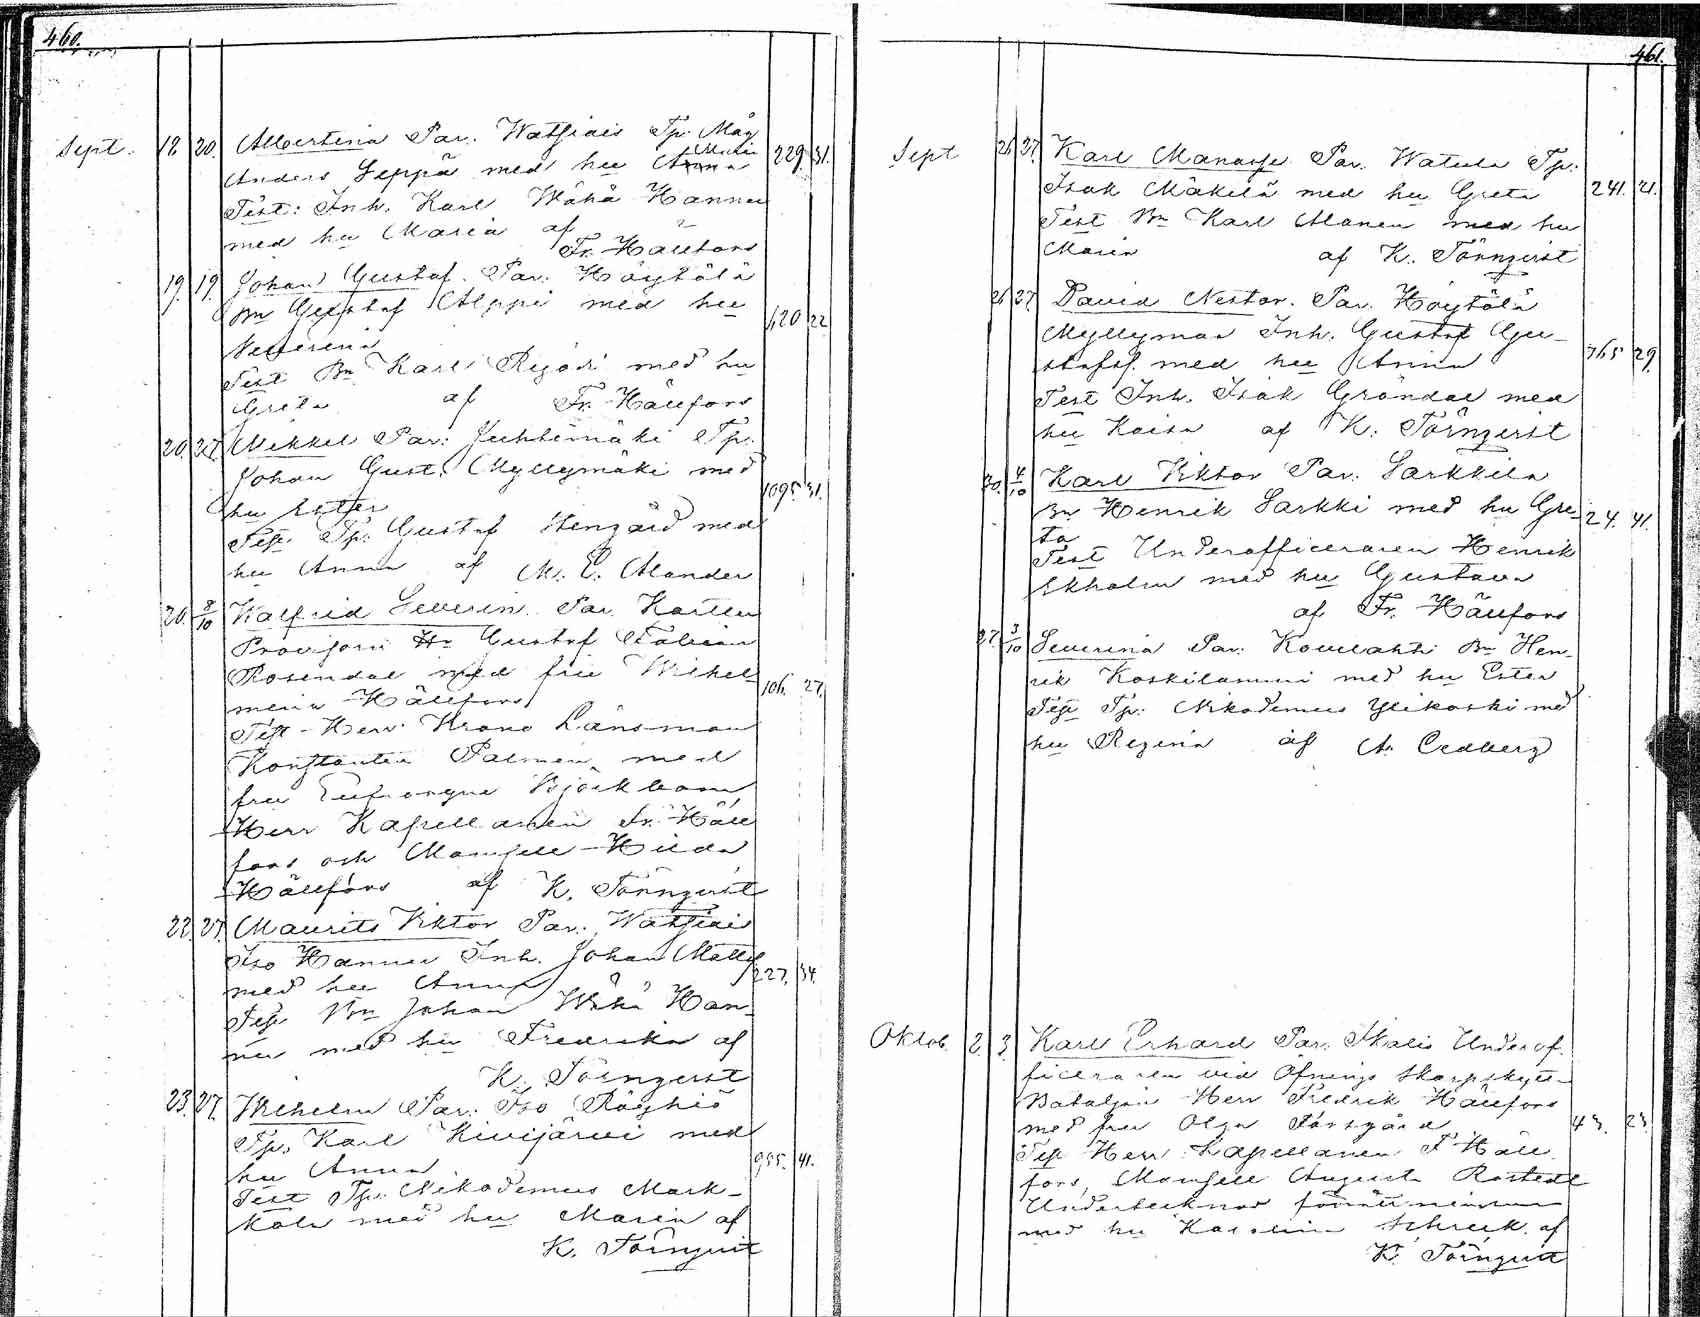 460.
Sept. 12. 20. Albertina Par. Watsiais Tp. Måg
Anders Seppä med hu Anna Maria 229. 31.
Test: Inh. Karl Wähä Hannu
med hu Maria af
Fr. Hällfors
19. 19. Johan Gustaf. Par. Höytölä
Bn Gustaf Alppi med hu 620 22
Severina
Test Bn Karl med hu
Greta af Fr. Hällfors
20. 27. Mikkel Par: Juhtimäki Tp.
Johan Gust. Myllymäki med
hu Ester 1095 31.
Test Tp. Gustaf Stengård med
hu Anna af M. E. Alander
20. 8/10 Walfrid Severin. Par. Karttu
Provisorn Hr Gustaf Fabian
Rosendal med fru Wilhel-
mina Hällfors 106. 27.
Test Herr Krono Länsman
Konstantin Palmén med
fru Eufrosyne Björkbom,
Herr Kapellanen Fr. Häll
fors och Mamsell Hilda
Hällfors af K. Törnqvist
22. 27. Maurits Viktor Par. Watsiais
Iso Hannu Inh. Johan Matts
med hu Anna 227. 34.
Test Bn Johan Wähä Han-
nu med hu Fredrika af
K. Törnqvist
23. 27. Wilhelm Par: Iso Röyhiö
Tp. Karl Kivijärvi med
hu Anna 955. 41.
Test Tp. Nikodemus Mark-
kola med hu Maria af
K. Törnqvist
461.
Sept 26 27. Karl Manasse Par. Watula Tp.
Isak Mäkilä med hu Greta 241. 21.
Test Bn Karl Alanen med hu
Maria af K. Törnqvist
26 27. David Nestor. Par. Höytölä
Myllymaa Inh. Gustaf Gu-
stafss. med hu Anna 765 29.
Test Inh. Isak Gröndal med
hu Kaisa af K. Törnqvist
30. 4/10 Karl Viktor Par. Sarkkila
Bn Henrik Sarkki med hu Gre- 24. 41.
ta
Test Underofficeraren Henrik
Ekholm med hu Gustava
af Fr. Hällfors
27. 3/10 Severina Par: Kovelahti Bn Hen-
rik Koskilammi med hu Ester
Test Tp. Nikodemus Ylikoski med
hu Regina af A. Cedberg
Oktob. 2. 3. Karl Erhard Par. Ikalis Underof-
ficeraren vid Öfnings Skarpskytte
Bataljon Herr Fredrik Hällfors
med fru Olga 43. 23.
Test Herr Kapellanen F Häll
fors, Mamsell Augusta Rostedt
med hu Karolina Schreck. af
K. Törnqvist